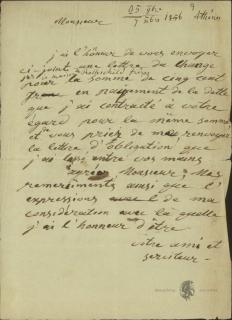 Monsieur
1846 Athènes
j'ai l'hônneur de vous envoyer
ci-joint une lettre de change
Rothschild frères
pour la somme de cinq cent
en payement de la dette
que j'ai contracté à votre
égard pour la même somme
et de vous prier de me renvoyer
la lettre d'obligation que
j'ai laissé entre vos mains
agréer Monsieur Mes
remerciments ainsi que l'
expressions de ma
considération avec la quelle
j'ai l'honneur d'être
votre ami et
serviteur